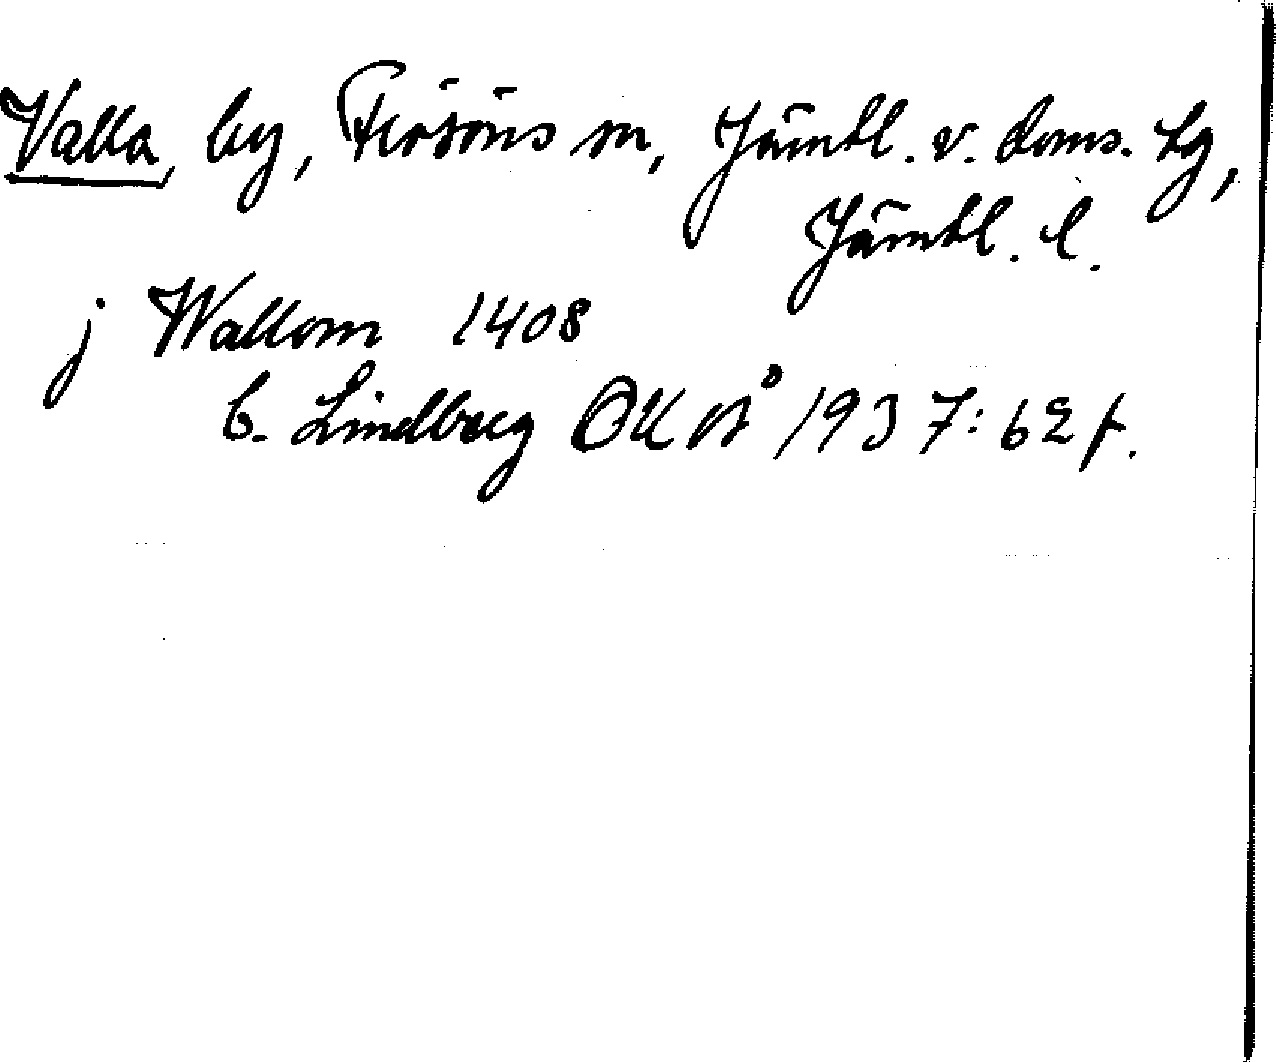 Valla, by, Frösöns sn, Jämtl. v. doms. tg,
Jämtl. l.
j Wallom 1408
C. Lindberg ÖK vÅ 1937: 62 f.